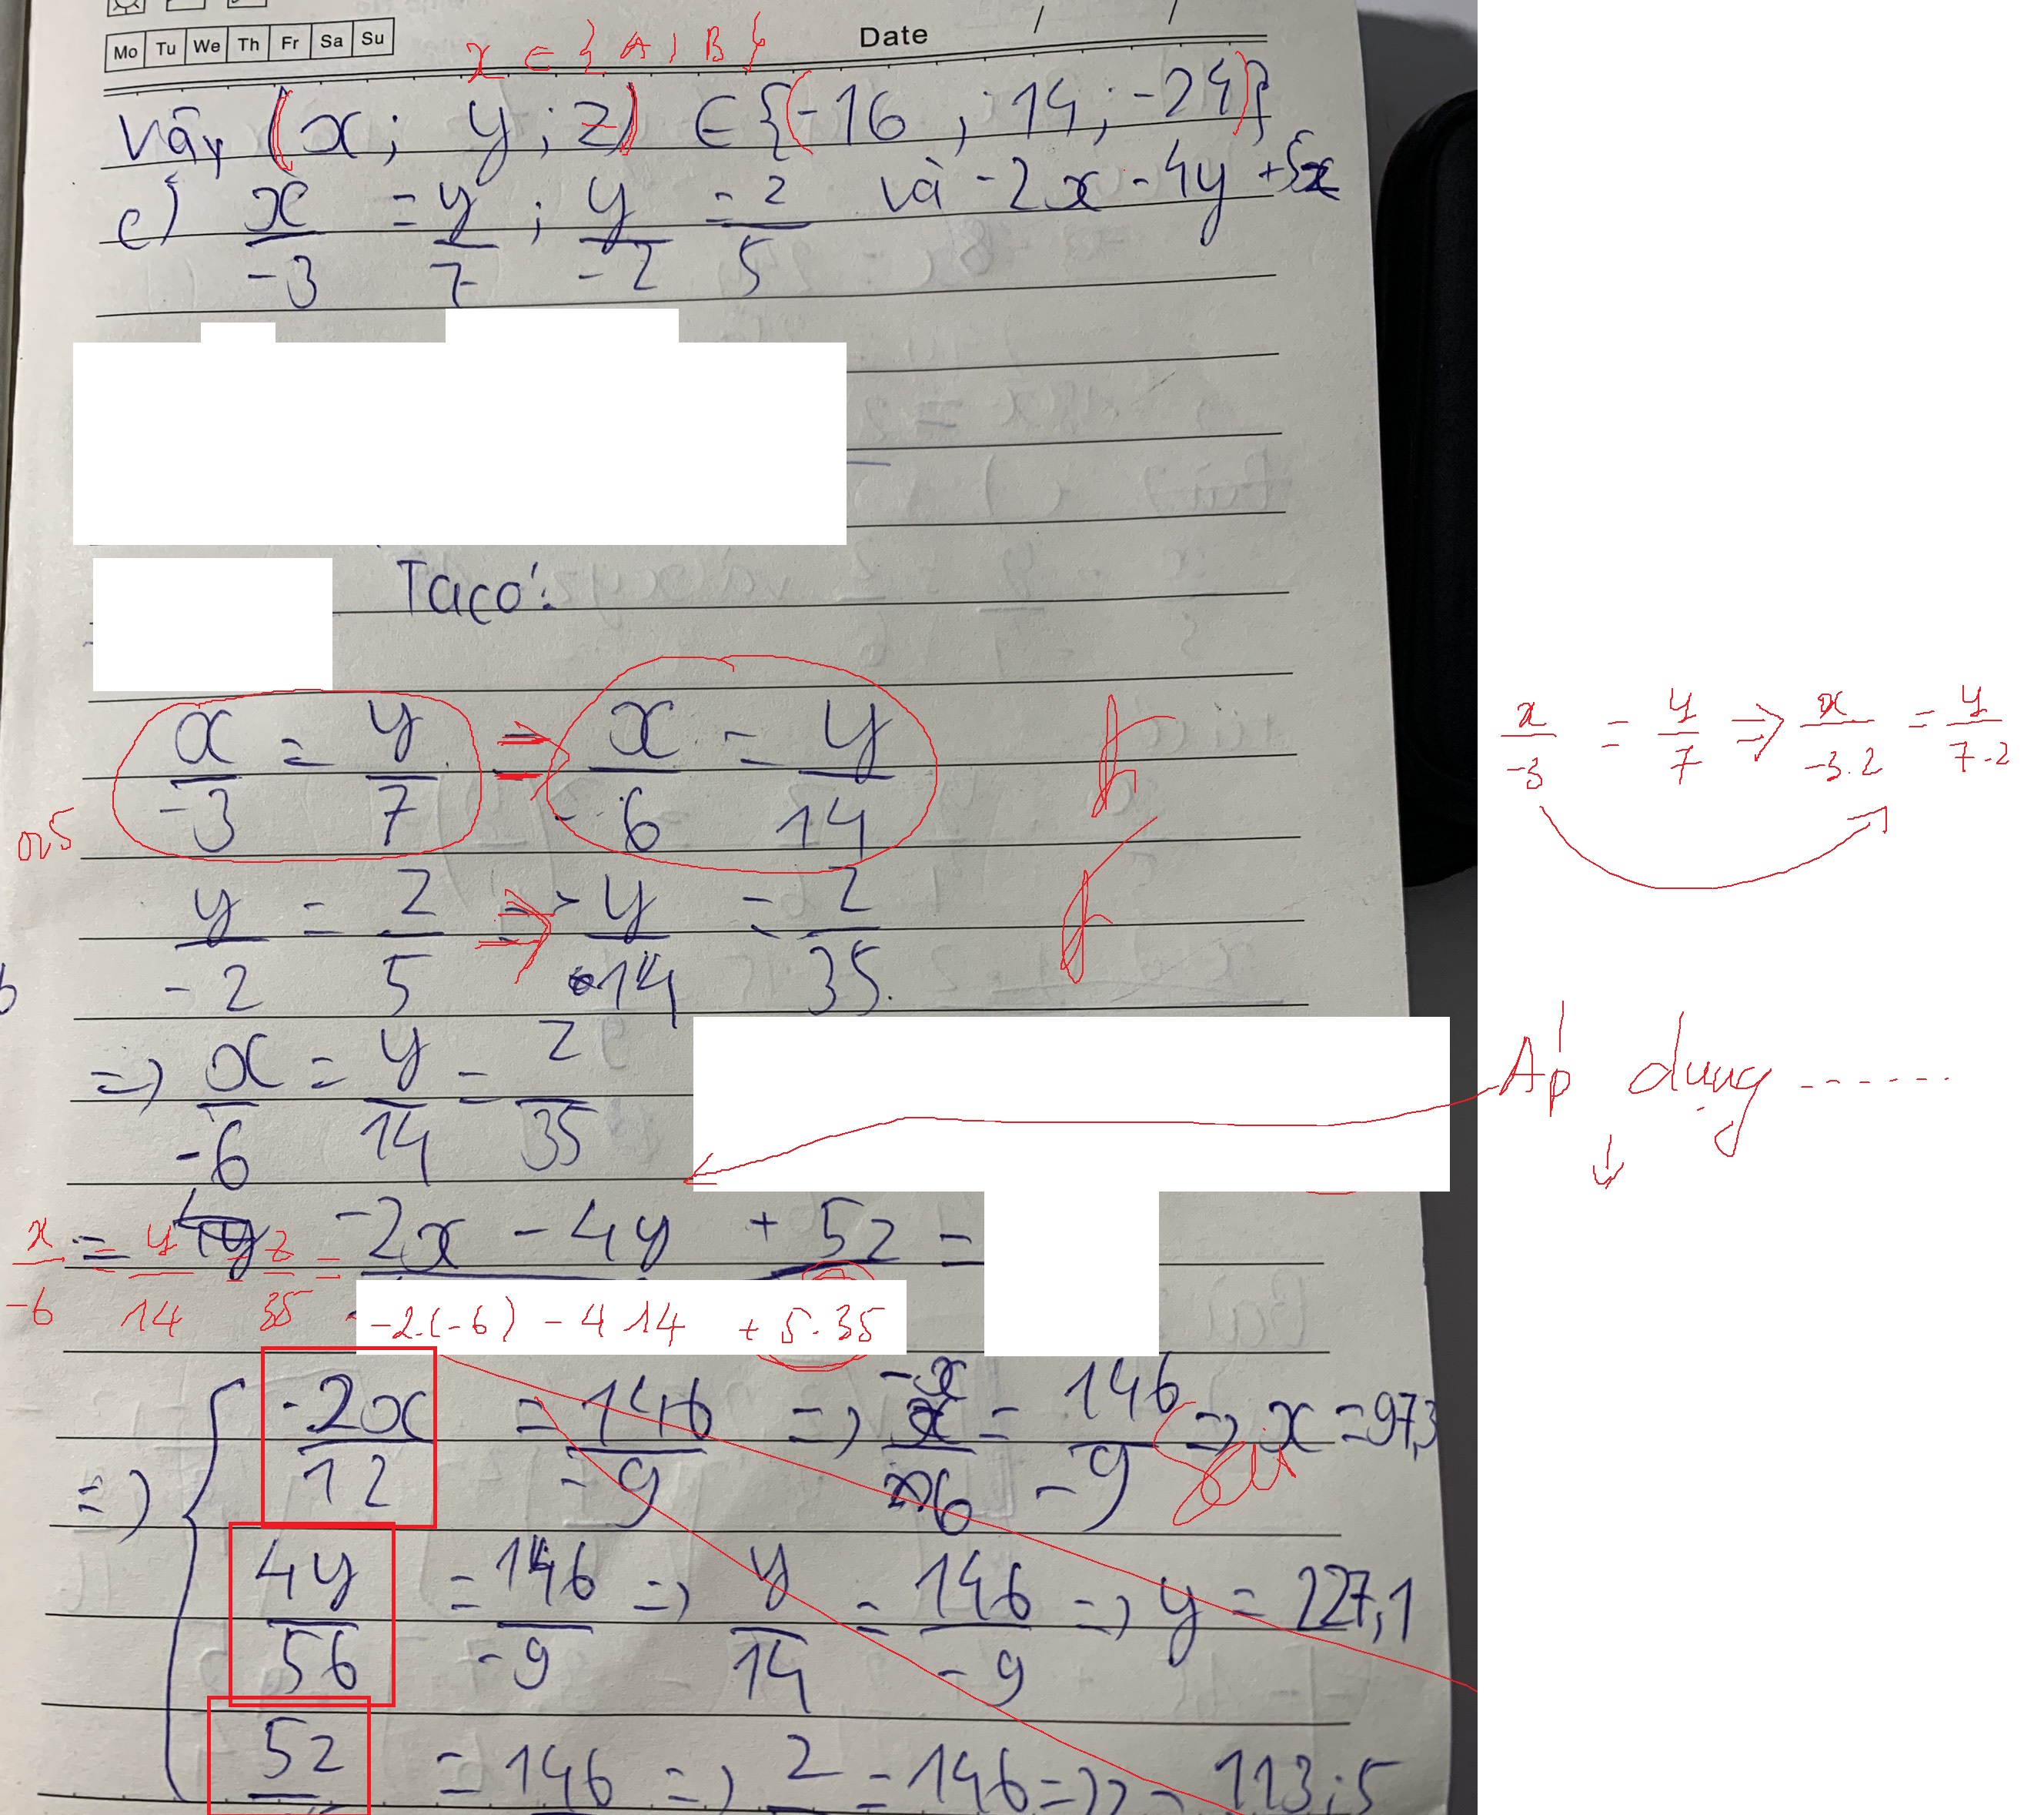 Mo Tu We Th Fr Sa Su
Date / /
x ∈ { A ; B }
Vậy (x; y; z) ∈ {(-16 ; 14; -24)}
c) x/-3 = y/7 ; y/-2 = z/5 và -2x - 4y + 5z
Ta có:
x/-3 = y/7 => x/-6 = y/14
x/-3 = y/7 => x/-3.2 = y/7.2
y/-2 = z/5 => y/-14 = z/35
=> x/-6 = y/14 = z/35
Áp dụng ......
x/-6 = y/14 = z/35 = -2x - 4y + 5z =
-2.(-6) - 4 14 + 5.35
=> -2x/12 = 146/-9 => -x/6 = 146/-9 => x = 97,3
4y/56 = 146/-9 => y/14 = 146/-9 => y = 227,1
5z = 146 => z = 146 => 113;5